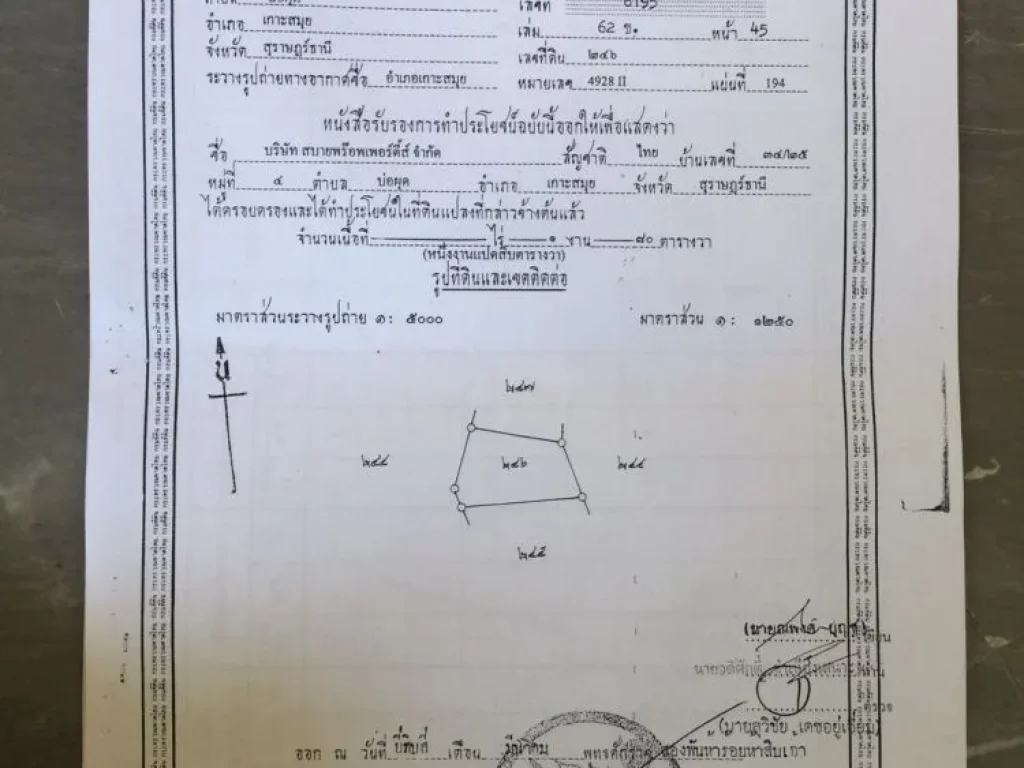 เลขที่ 6195
อำเภอ เกาะสมุย เล่ม 62 ข. หน้า 45
จังหวัด สุราษฎร์ธานี เลขที่ดิน ๒๔๖
ระวางรูปถ่ายทางอากาศชื่อ อำเภอเกาะสมุย หมายเลข 4928 II แผ่นที่ 194
หนังสือรับรองการทำประโยชน์ฉบับนี้ออกให้เพื่อแสดงว่า
ชื่อ บริษัท สบายพร๊อพเพอร์ตี้ส์ จำกัด สัญชาติ ไทย บ้านเลขที่ ๓๔/๒๕
หมู่ที่ ๔ ตำบล บ่อผุด อำเภอ เกาะสมุย จังหวัด สุราษฎร์ธานี
ได้ครอบครองและได้ทำประโยชน์ในที่ดินแปลงที่กล่าวข้างต้นแล้ว
จำนวนเนื้อที่ ไร่ ๑ งาน ๘๐ ตารางวา
(หนึ่งงานแปดสิบตารางวา)
รูปที่ดินและเขตติดต่อ
มาตราส่วนระวางรูปถ่าย ๑: ๕๐๐๐ มาตราส่วน ๑: ๑๒๕๐
น
๒๔๗
๒๔๖
(นายสุวิชัย เดชอยู่เจี่ยม)
ออก ณ วันที่ ยี่สิบสี่ เดือน มีนาคม พุทธศักราช สองพันห้าร้อยห้าสิบเอ